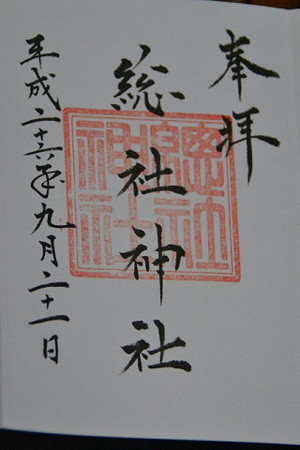 奉拝
総社神社
平成二十六年九月二十一日
總社神社